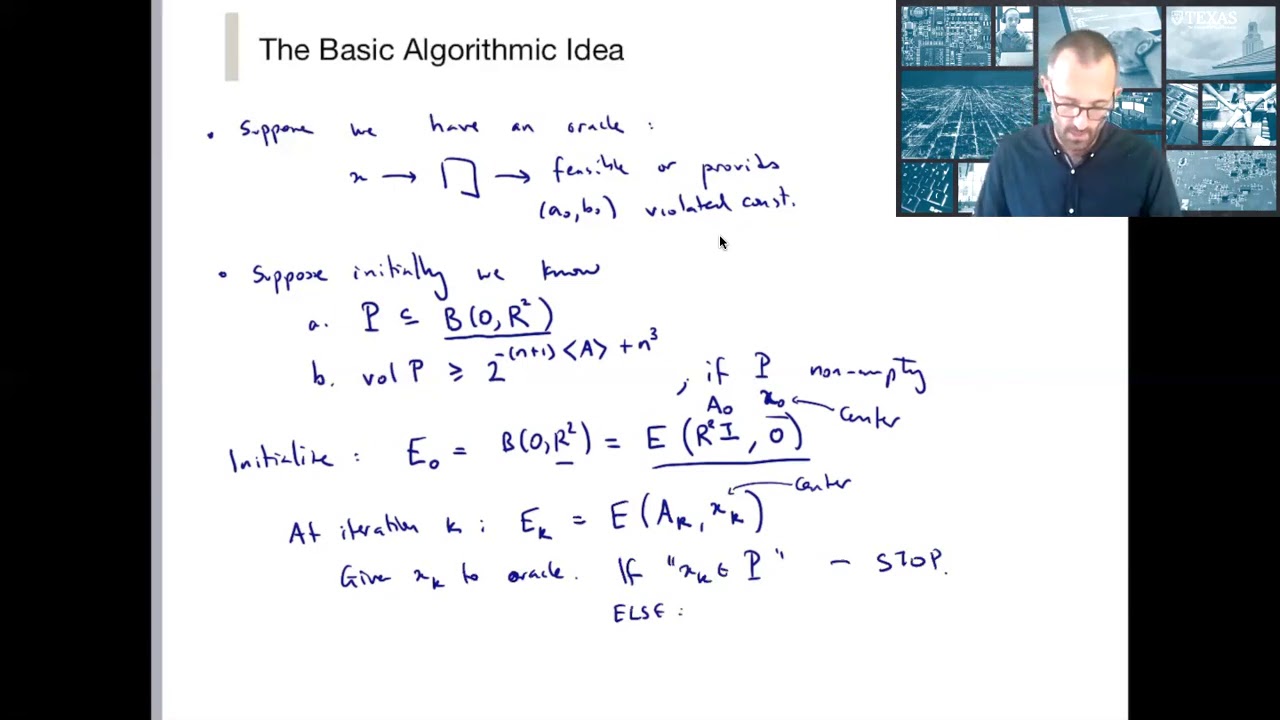 The Basic Algorithmic Idea
TEXAS
• Suppose we have an oracle :
x → → feasible or provides
(a₀, b₀) violated const.
• Suppose initially we know
a. P ⊆ B(0, R²)
b. vol P ≥ 2^{-(n+1)<A> + n³}
, if P non-empty
A₀ x₀ ← center
Initialize : E₀ = B(0, R²) = E (R²I, 0)
center
At iteration k : E_k = E (A_k, x_k)
Give x_k to oracle. If "x_k ∈ P" – STOP.
ELSE :